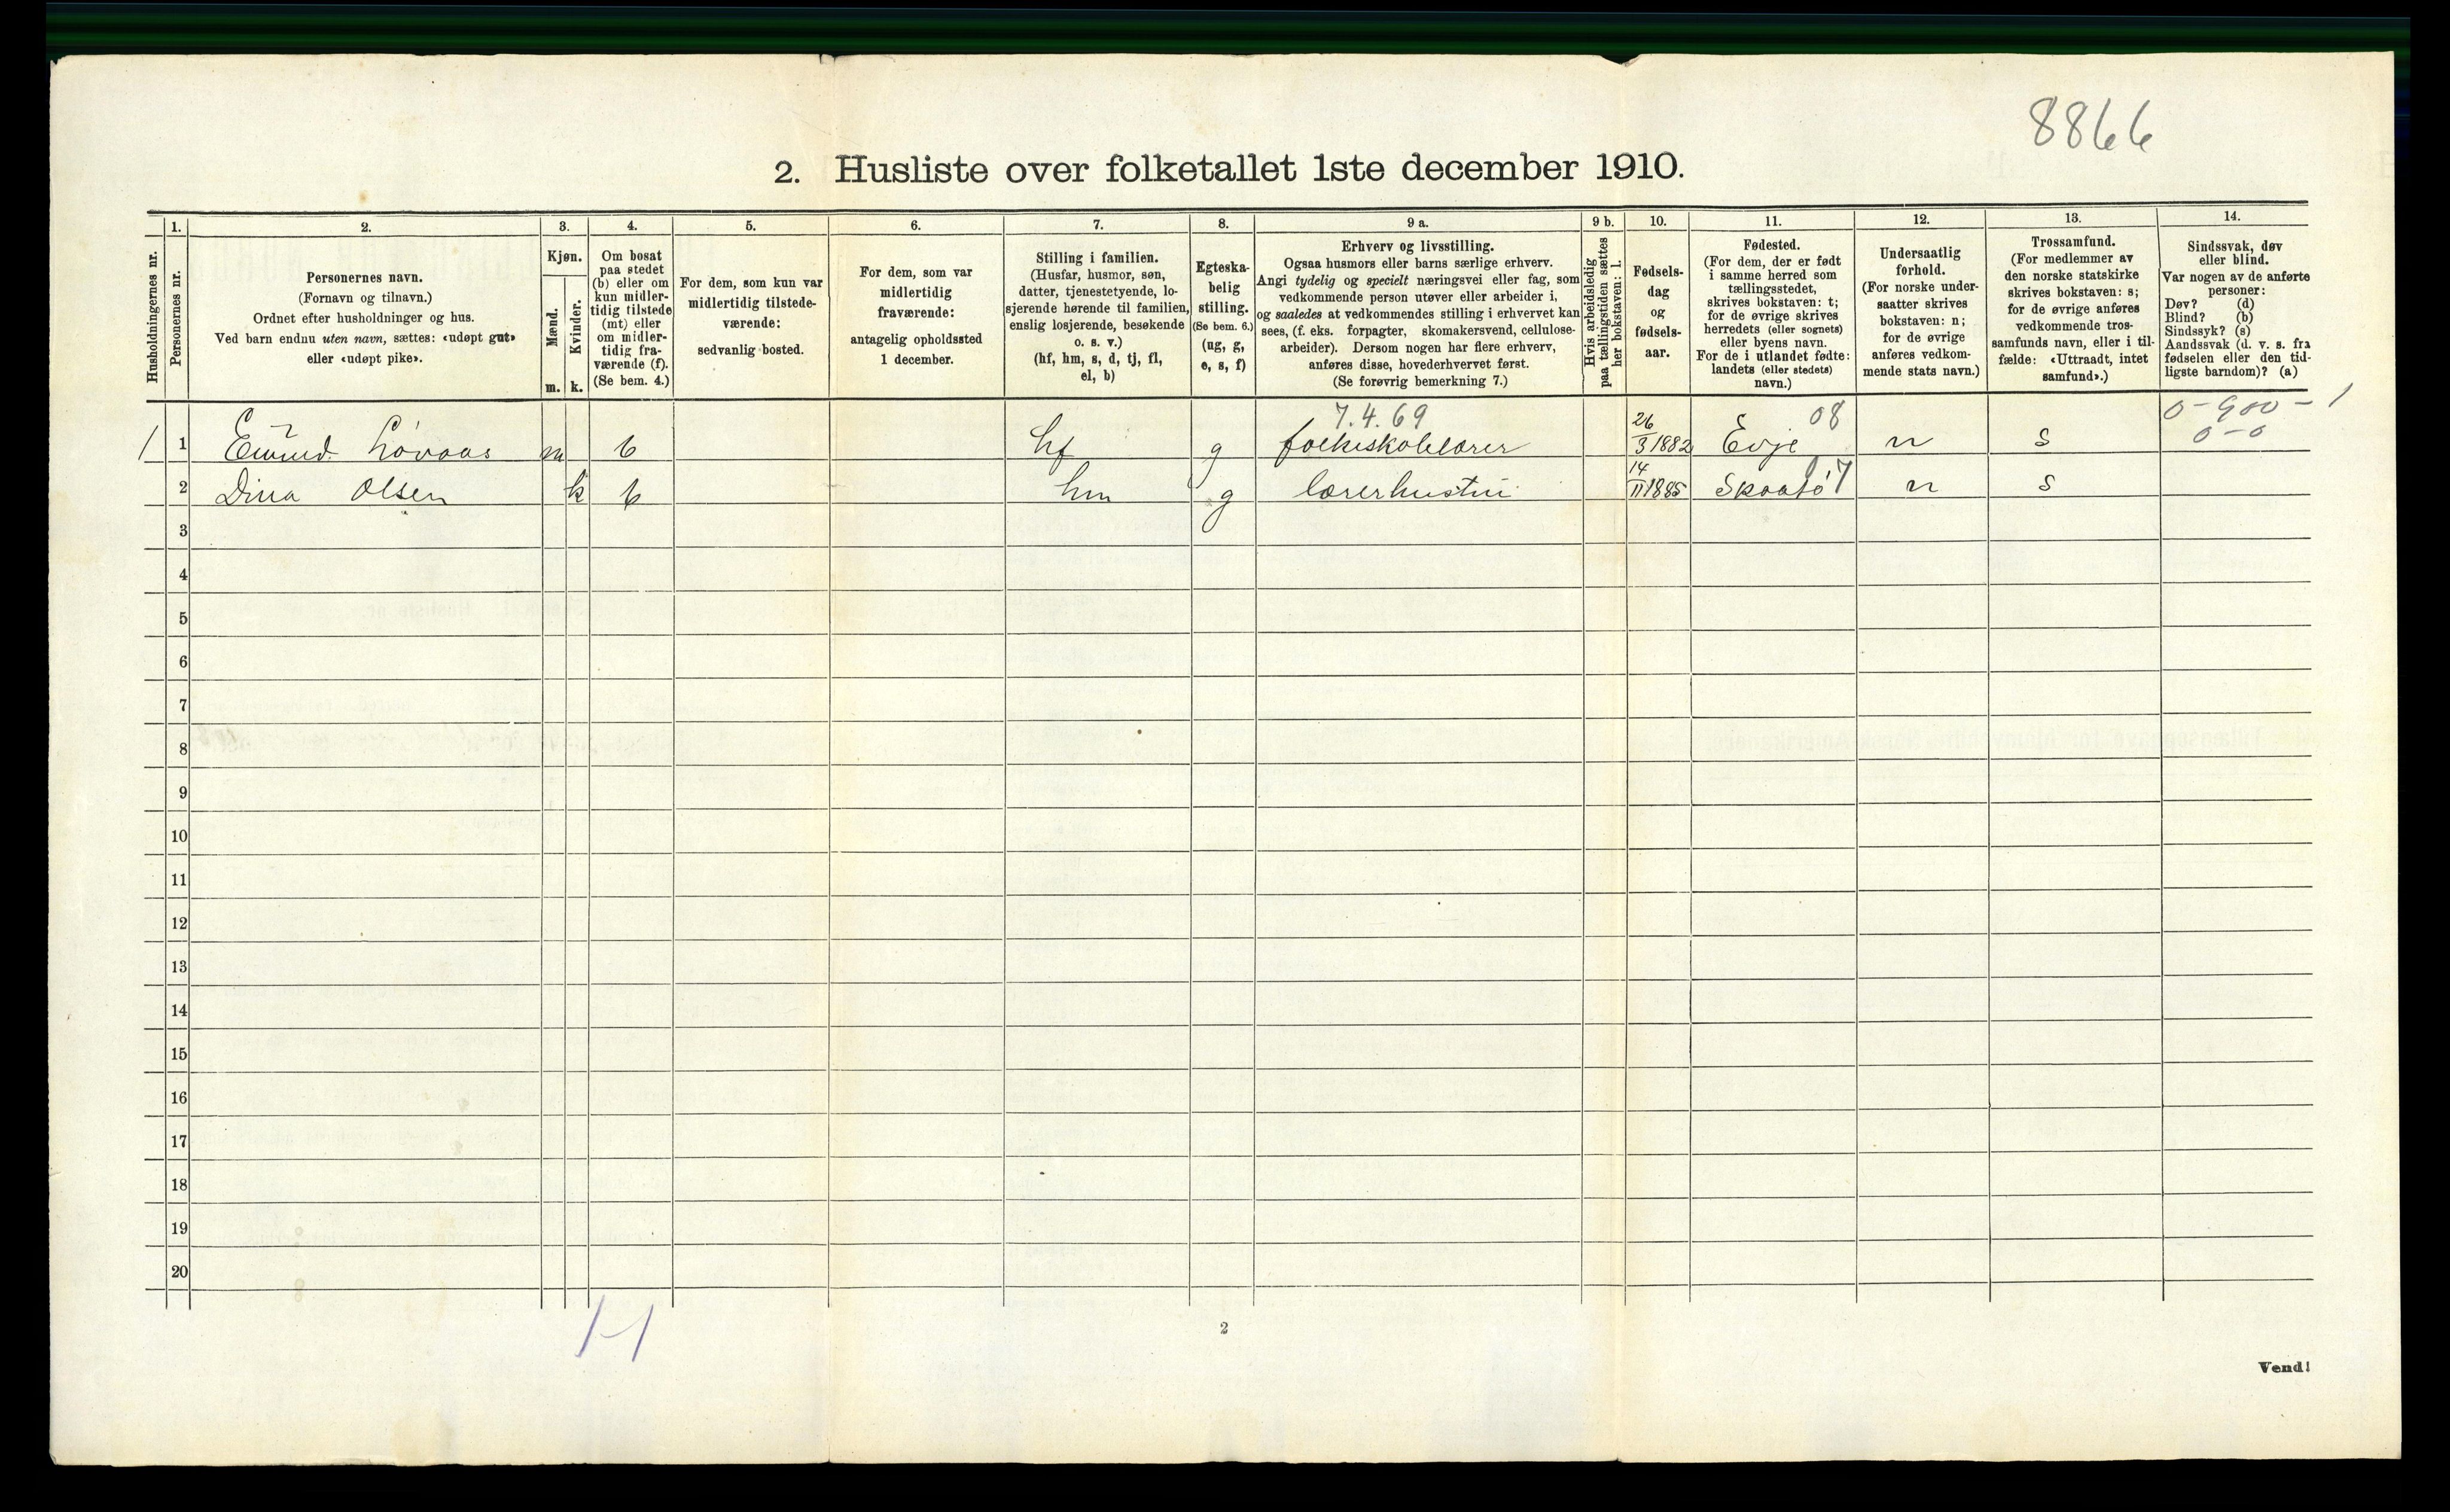 8866
2. Husliste over folketallet 1ste december 1910.
Husholdningernes nr.
1.
Personernes nr.
2.
Personernes navn.
(Fornavn og tilnavn.)
Ordnet efter husholdninger og hus.
Ved barn endnu uten navn, sættes: «udøpt gut»
eller «udøpt pike».
3.
Kjøn.
Mænd.
m.
Kvinder.
k.
4.
Om bosat
paa stedet
(b) eller om
kun midler-
tidig tilstede
(mt) eller
om midler-
tidig fra-
værende (f).
(Se bem. 4.)
5.
For dem, som kun var
midlertidig tilstede-
værende:
sedvanlig bosted.
6.
For dem, som var
midlertidig
fraværende:
antagelig opholdssted
1 december.
7.
Stilling i familien.
(Husfar, husmor, søn,
datter, tjenestetyende, lo-
sjerende hørende til familien,
enslig losjerende, besøkende
o. s. v.)
(hf, hm, s, d, tj, fl,
el, b)
8.
Egteska-
belig
stilling.
(Se bem. 6.)
(ug, g,
e, s, f)
9 a.
Erhverv og livsstilling.
Ogsaa husmors eller barns særlige erhverv.
Angi tydelig og specielt næringsvei eller fag, som
vedkommende person utøver eller arbeider i,
og saaledes at vedkommendes stilling i erhvervet kan
sees, (f. eks. forpagter, skomakersvend, cellulose-
arbeider). Dersom nogen har flere erhverv,
anføres disse, hovederhvervet først.
(Se forøvrig bemerkning 7.)
9 b.
Hvis arbeidsledig
paa tællingstiden sættes
her bokstaven: l.
10.
Fødsels-
dag
og
fødsels-
aar.
11.
Fødested.
(For dem, der er født
i samme herred som
tællingsstedet,
skrives bokstaven: t;
for de øvrige skrives
herredets (eller sognets)
eller byens navn.
For de i utlandet fødte:
landets (eller stedets)
navn.)
12.
Undersaatlig
forhold.
(For norske under-
saatter skrives
bokstaven: n;
for de øvrige
anføres vedkom-
mende stats navn.)
13.
Trossamfund.
(For medlemmer av
den norske statskirke
skrives bokstaven: s;
for de øvrige anføres
vedkommende tros-
samfunds navn, eller i til-
fælde: «Uttraadt, intet
samfund».)
14.
Sindssvak, døv
eller blind.
Var nogen av de anførte
personer:
Døv? (d)
Blind? (b)
Sindssyk? (s)
Aandssvak (d. v. s. fra
fødselen eller den tid-
ligste barndom)? (a)
7.4.69 08 0-900-1
1 1 Løvaas m b hf g folkeskolelærer 26/3 1882 Evje n s 0-0
2 Dina Olsen k b hm g lærerhustru 14/11 1885 Skaatø 7 n s
3
4
5
6
7
8
9
10
11
12
13
14
15
16
17
18
19
20
1-1
2
Vend!